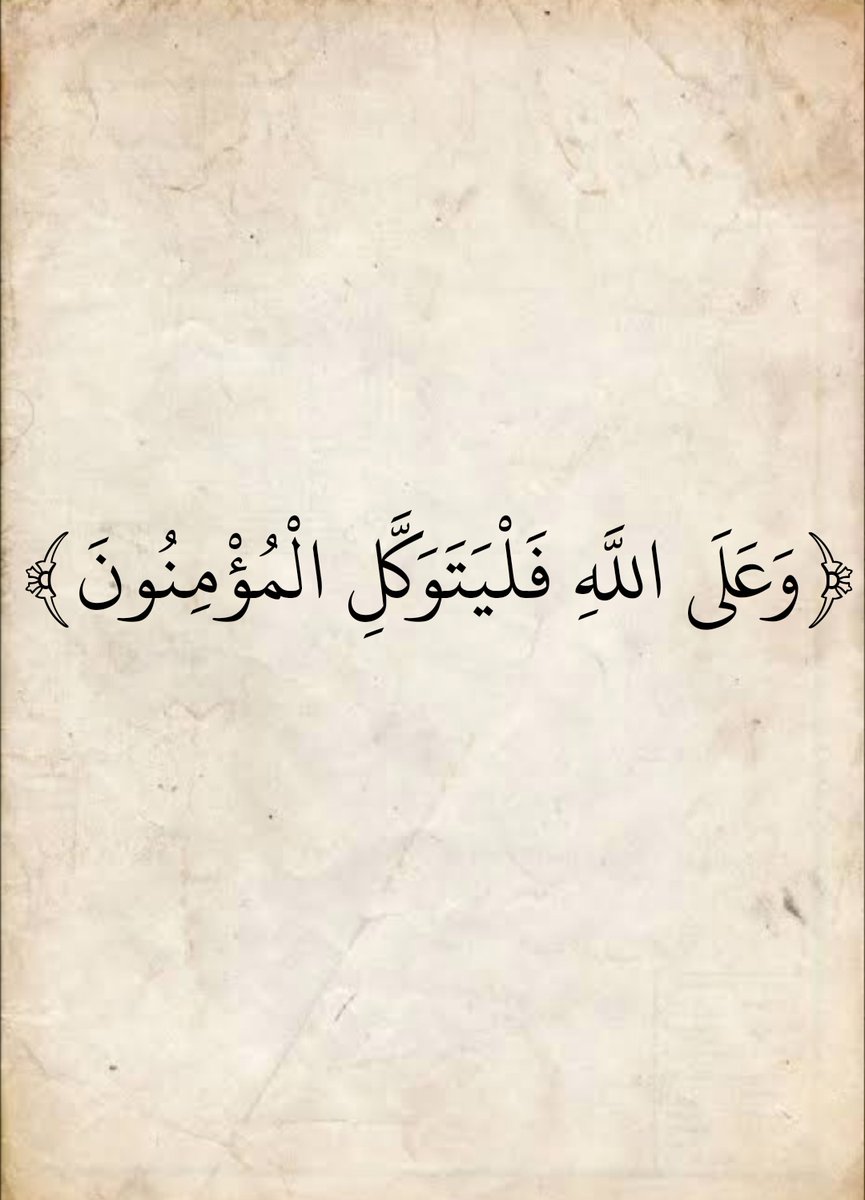 ﴿وَعَلَى اللَّهِ فَلْيَتَوَكَّلِ الْمُؤْمِنُونَ﴾